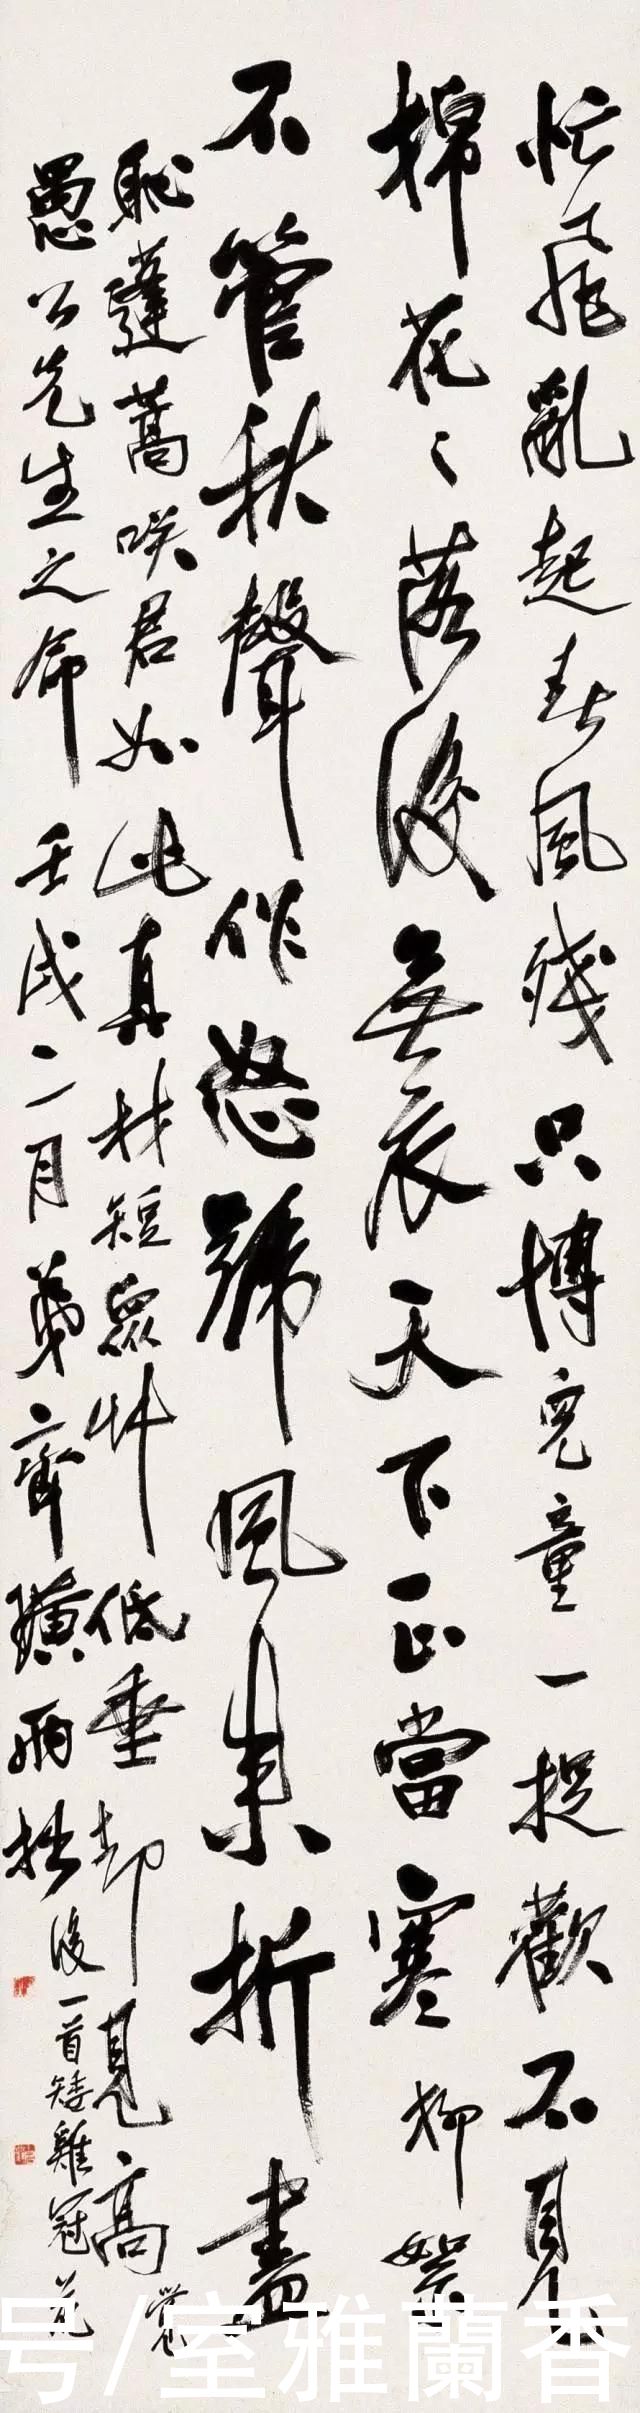 忙飛亂起春風殘只博兒童一捉歡不見
棉花々落後無衣天下正當寒柳絮
不管秋聲作怒號風來折盡
恥蓬蒿咲君如此真材短眾艸低垂却見高 覺
愚公先生之命壬戌二月弟齊璜兩拙
後一首矮雞冠花
号/室雅蘭香